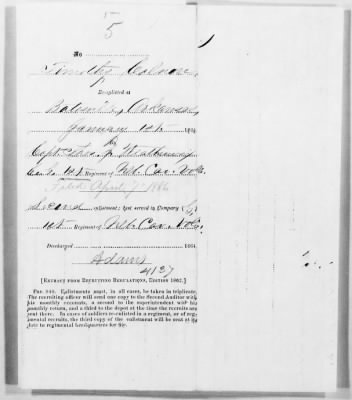 5
No
Timothy
Re-enlisted at
Batesville, Arkansas,
January 1st 1864
By
Capt.
Co. 1st Regiment of Neb. Cav. Vols.
Filed April 7" 1886
Second enlistment; last served in Company
1st Regiment of Neb. Cav. Vols.
Discharged 1864
Adams
4137
[EXTRACT FROM RECRUITING REGULATIONS, EDITION 1862.]
PAR. Enlistments must, in all cases, be taken in triplicate.
The recruiting officer will send one copy to the Second Auditor with
his monthly accounts, a second to the superintendent with his
monthly return, and a third to the depot at the time the recruits are
sent there. In cases of soldiers re-enlisted in a regiment, or of regi-
mental recruits, the third copy of the enlistment will be sent at its
date to regimental headquarters for file.